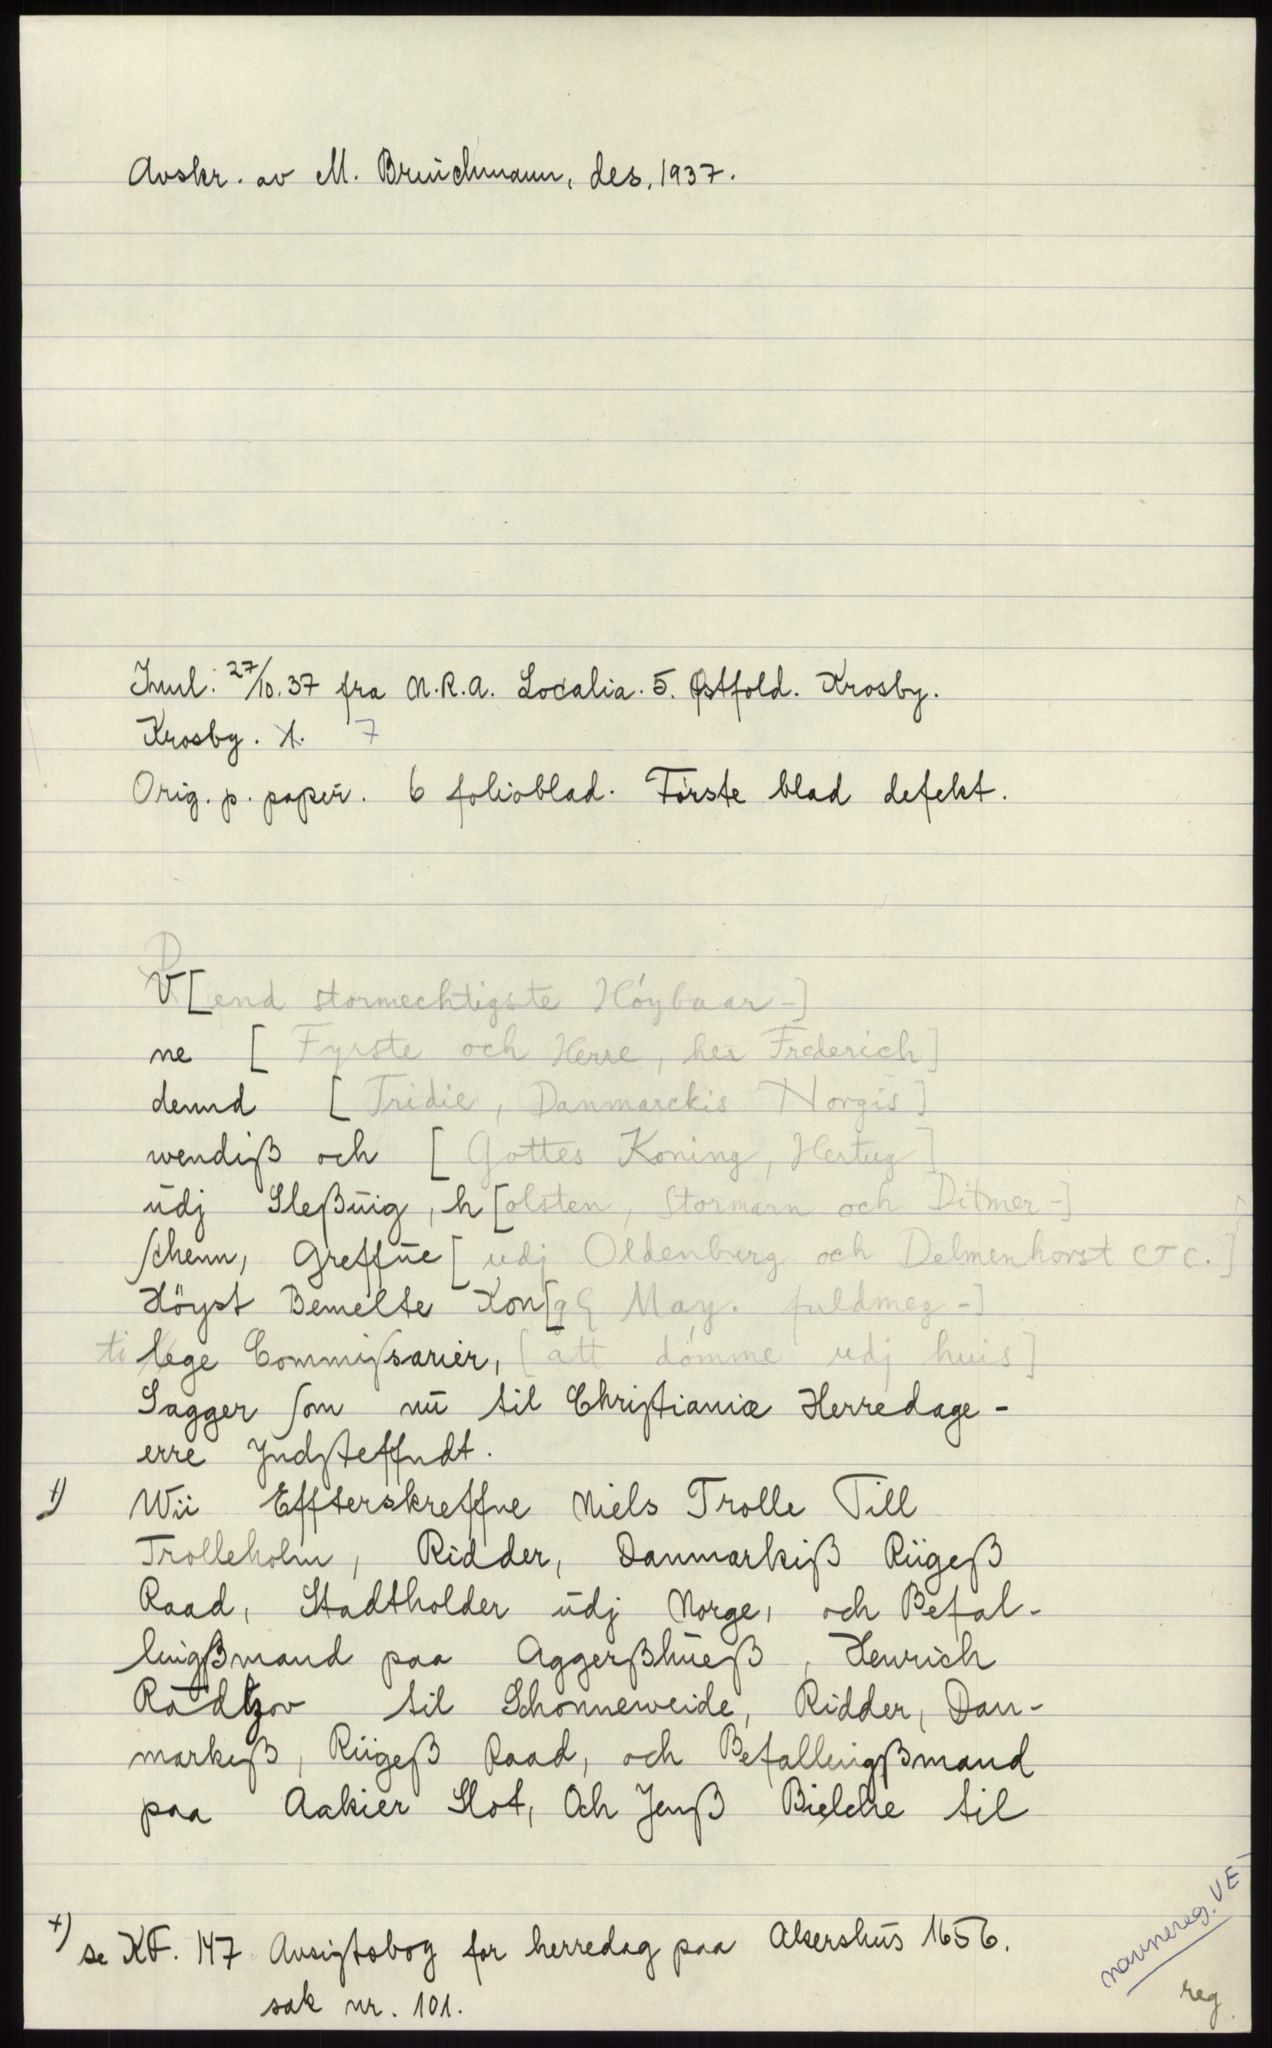 Avskr. av M. Bruichmann, des. 1937.
Innl. 27/10.37 fra N.R.A. Localia. 5. Østfold. Krosby.
Krosby. 7
Orig. p. papir. 6 folioblad. Første blad defekt.
V[end stormechtigste Höybaar-]
ne [Fyrste och Herre, her Frederich]
dennd [Tridie, Danmarckis Norgis]
wendiß och [Gottes Koning, Hertug]
udj Sleßuig, h[olsten, Stormarn och Ditmer-]
schenn, Greffue [udj Oldenburg och Delmenhorst etc.]
Höyst Bemelte Kon[gl May. fuldmeg-]
ti lege Commissarier, [att dömme udj huis]
Sagger som nu til Christianiæ Herredage-
erre Jndsteffndt.
+) Wii Effterskreffne Niels Trolle Till
Trolleholm, Ridder, Danmarkiß Riigeß
Raad, Stadtholder udj Norge, och Befal-
lingßmand paa Aggerßhueß, Henrich
Radtzov til Schonneweide, Ridder, Dan-
markeß, Riigeß Raad, och Befallingßmand
paa Aakier Slot, Och Jenß Bielche til
+) se KF. 147 Avsigtsbog for herredag paa Akershus 1656.
sak nr. 101.
navnereg. VE
reg.